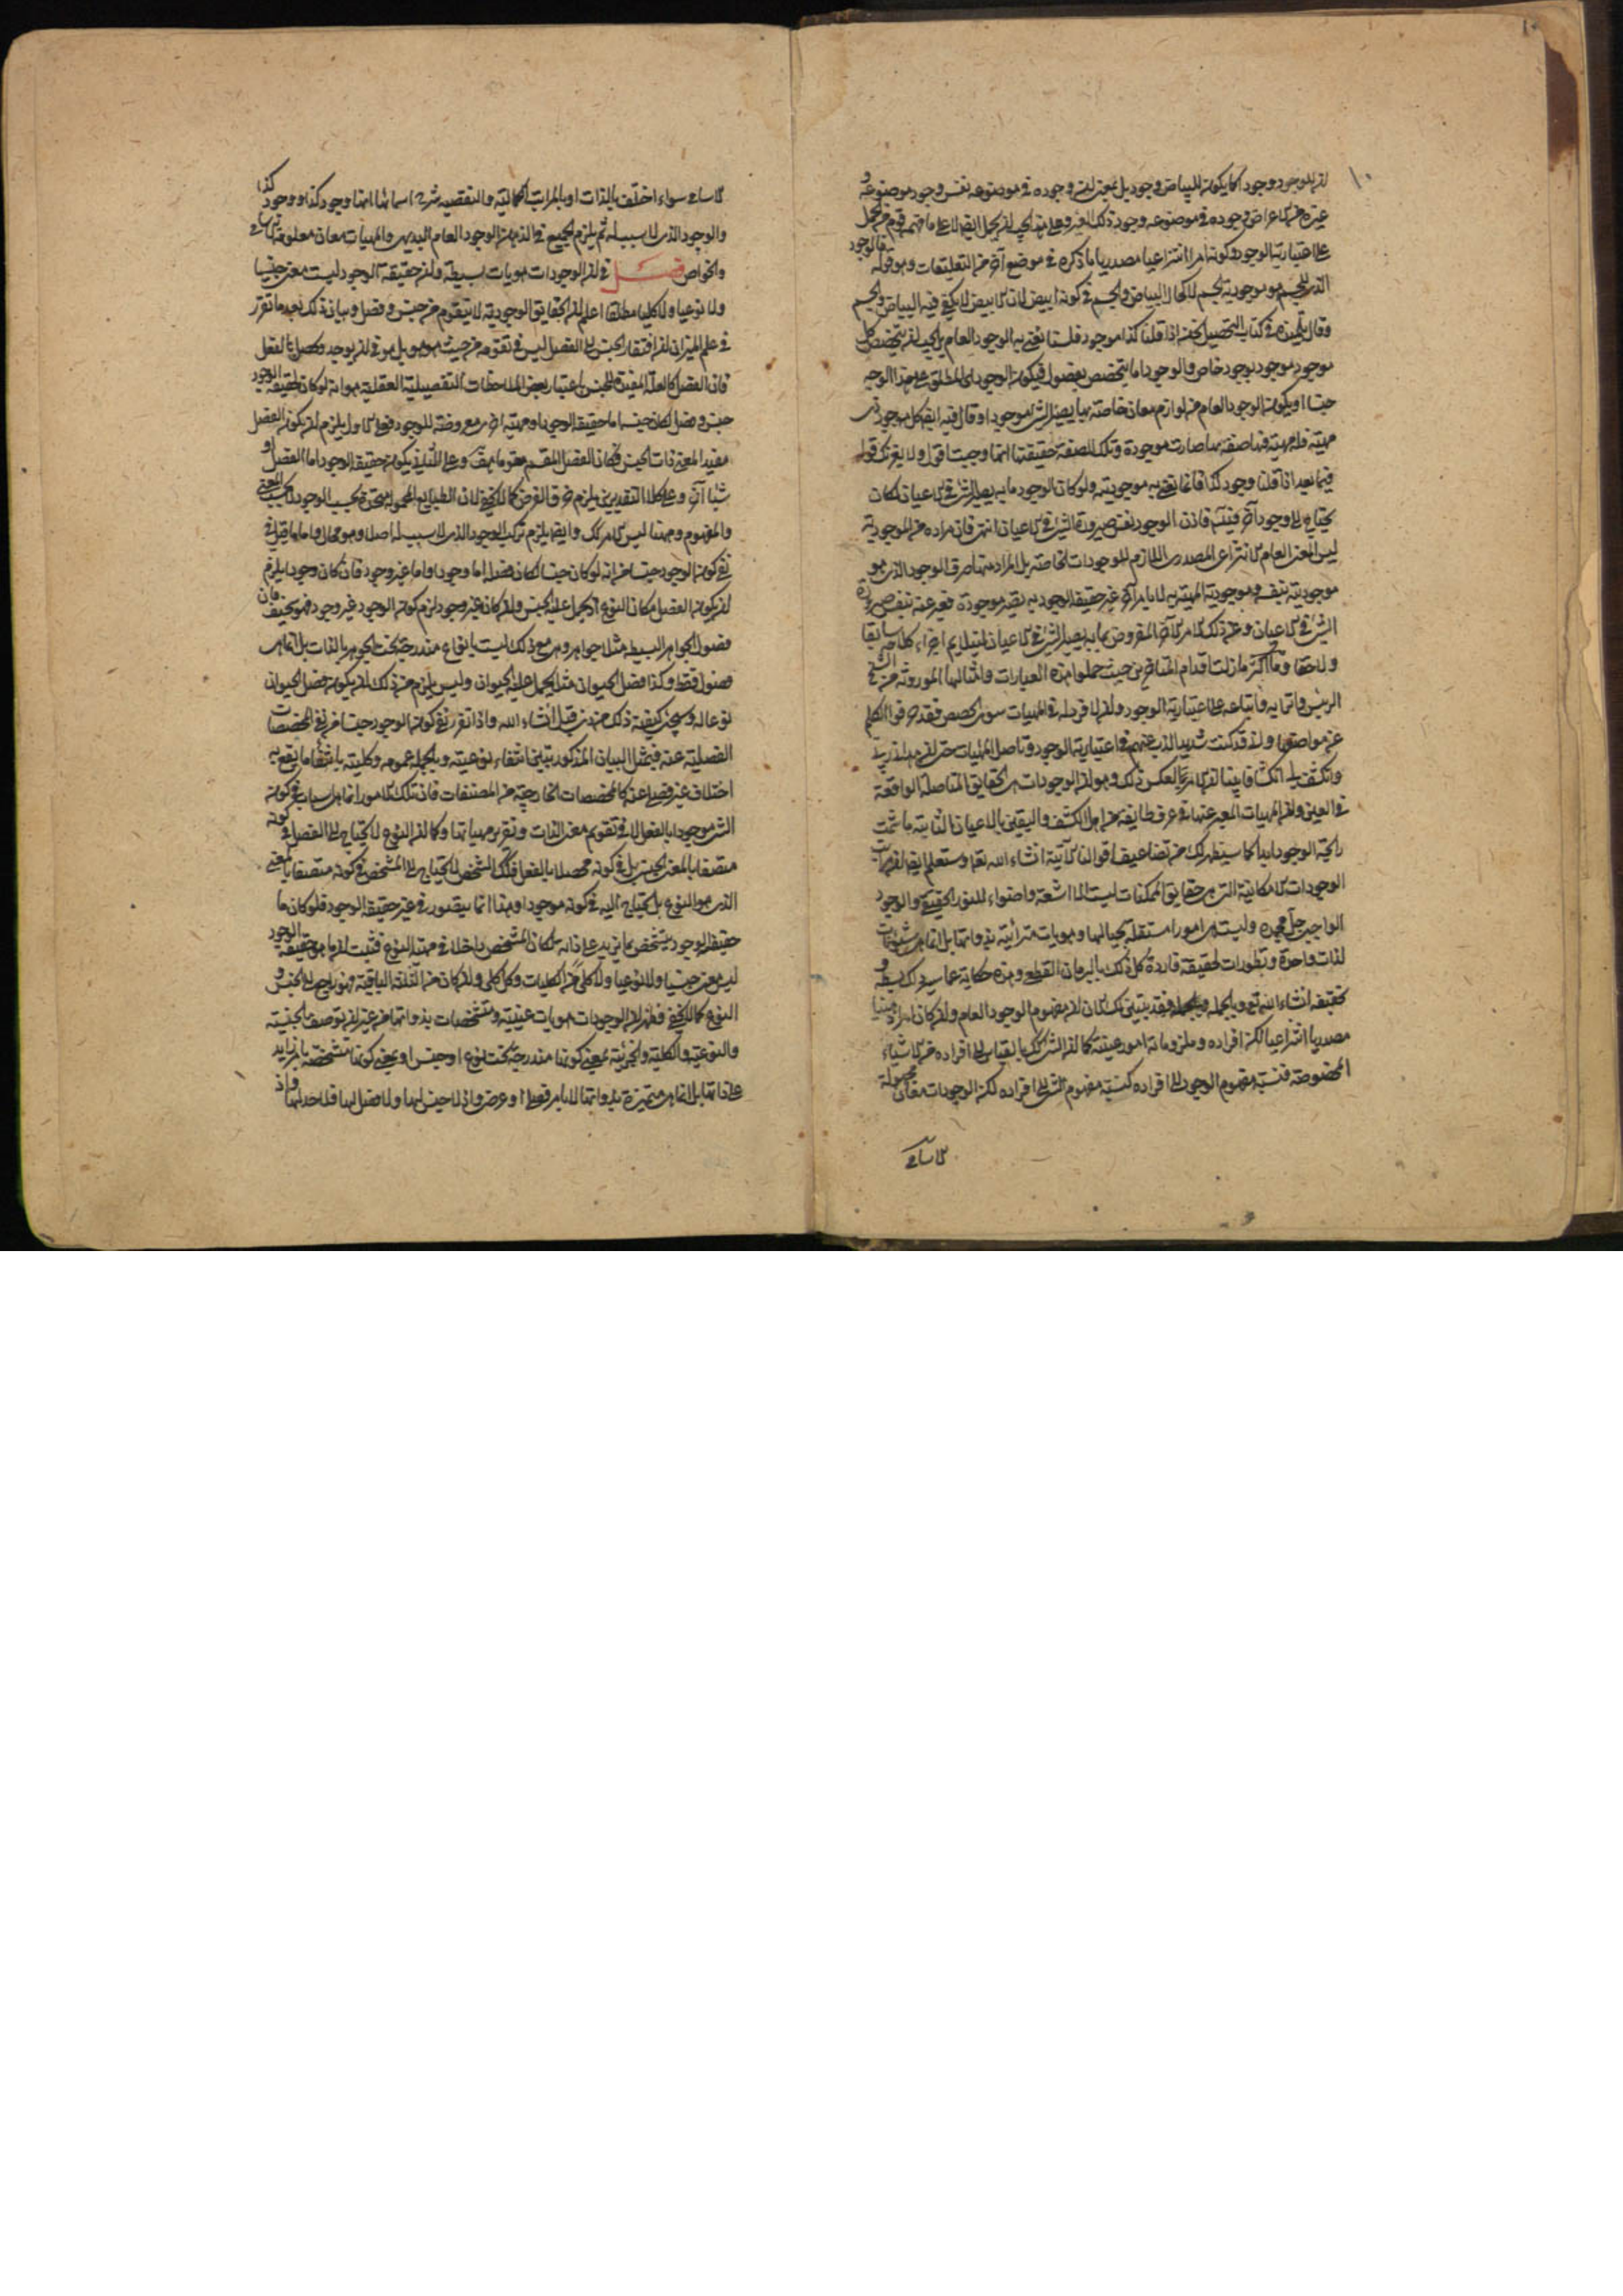 ١٠
ان للموجود وجودا كما يكون للبياض وجود بل بمعنى ان وجوده في موضوعه نفس وجود موضوعه و
غيره من الاعراض وجوده في موضوعه وجود ذلك الغير وعلى هذا يجب ان يحمل ايضا لا على ما فهمه قوم من الحمل
على اعتبارية الوجود وكونه امرا انتزاعيا مصدريا ما ذكره في موضع آخر من التعليقات وهو قوله فالوجود
الذي للجسم هو موجودية الجسم لا كحال البياض والجسم في كونه ابيض لان الابيض لا يكفي فيه البياض والجسم
وقال تلميذه في كتاب التحصيل نحن اذا قلنا كذا موجود فلسنا نعني به الوجود العام بل يجب ان يتخصص كل
موجود بوجود خاص والوجود اما يتخصص بفصول فيكون الوجود اي المطلق على هذا الوجه
جنسا او يكون الوجود العام من لوازم معان خاصة بها يصير الشئ موجودا وقال فيه ايضا كل موجود ذي
مهية فله مهية فيها صفة بها صارت موجودة وتلك الصفة حقيقتها انها وجبت اقول ولا يغرنك قوله
فيما بعد اذا قلنا وجود كذا فانما نعني به موجوديته ولو كان الوجود ما به يصير الشئ في الاعيان لكان
يحتاج الى وجود آخر فيتسلسل فاذن الوجود نفس صيرورة الشئ في الاعيان انتهى فان مراده من الموجودية
ليس المعنى العام الانتزاعي المصدري اللازم للوجودات الخاصة بل المراد منها صرف الوجود الذي هو
موجوديته بنفسه وموجودية المهية به لا بامر آخر غير حقيقة الوجود به يصير موجودة فعبر عنه بنفس صيرورة
الشئ في الاعيان وعن ذلك الامر الآخر المفروض بما به يصير الشئ في الاعيان ليتلايم اجزاء كلامه سابقا
ولاحقا وما اكثر ما زلت اقدام المتاخرين حيث حملوا هذه العبارات وامثالها الموروثة من الشيخ
الرئيس واترابه واتباعه على اعتبارية الوجود وان لا فرد له في المهيات سوى الحصص فقد حرفوا الكلم
عن مواضعها وانى قد كنت شديد الذب عنهم في اعتبارية الوجود وتاصل المهيات حتى ان هداني ربي
وانكشف لي انكشافا بينا ان الامر بالعكس ذلك وهو ان الوجودات هي الحقايق المتاصلة الواقعة
في العين وان المهيات المعبر عنها في عرف طايفة من اهل الكشف واليقين بالاعيان الثابتة ما شمت
رايحة الوجود ابدا كما سيظهر لك من تضاعيف اقوالنا الآتية انشاء الله تعا وستعلم ايضا ان مراتب
الوجودات الامكانية التي هي حقايق الممكنات ليست الا اشعة واضواء للنور الحقيقي والوجود
الواجبي جل مجده وليست هي امورا مستقلة بحيالها وهويات مترائية بذواتها بل انما هي شئونات
لذات واحدة وتطورات لحقيقة فاردة كل ذلك بالبرهان القطعي وهذه حكاية عما سيرد لك بسطه و
تحقيقه انشاء الله تع وبالجملة فقد تبين لك الان ان مفهوم الوجود العام وان كان امرا ذهنيا
مصدريا انتزاعيا لكن افراده وملزوماته امور عينية كما ان الشئ كذلك بالقياس الى افراده من الاشياء
المخصوصة فنسبة مفهوم الوجود الى افراده كنسبة مفهوم الشئ الى افراده لكن الوجودات معان مجهولة
الاسامي
الاسامي سواء اختلفت بالذات او بالمراتب الكمالية والنقصية شرح اسمائها انها وجود كذا ووجود كذا
والوجود الذي لا سبب له ثم يلزم الجميع في الذهن الوجود العام البديهي والمهيات معان معلومة الاسامي
والخواص فصل في ان الوجودات هويات بسيطة وان حقيقة الوجود ليست معنى جنسيا
ولا نوعيا ولا كليا مطلقا اعلم ان الحقايق الوجودية لا يتقوم من جنس وفصل وبيان ذلك بعد ما تقرر
في علم الميزان ان افتقار الجنس الى الفصل ليس في تقومه من حيث هو هو بل هو في ان يوجد ويحصل بالفعل
فان الفصل كالعلة المفيدة للجنس باعتبار بعض الملاحظات التفصيلية العقلية هو انه لو كان لحقيقة الوجود
جنس وفصل لكان جنسه اما حقيقة الوجود او مهية اخرى معروضة للوجود فعلى الاول يلزم ان يكون الفصل
مفيدا لمعنى ذات الجنس فكان الفصل المقسم مقوما هف وعلى الثاني يكون حقيقة الوجود اما الفصل او
شيئا آخر وعلى كلا التقديرين يلزم خرق الفرض كما لا يخفى لان الطبايع المحمولة متحدة بحسب الوجود مختلفة بحسب المعنى
والمفهوم وههنا ليس الامر كك وايضا يلزم تركب الوجود الذي لا سبب له اصلا وهو محال واما ما قيل في
نفي كون الوجود جنسا من انه لو كان جنسا لكان فصله اما وجودا واما غير وجود فان كان وجودا يلزم
ان يكون الفصل مكان النوع اذ يحمل عليه الجنس وان كان غير وجود لزم كون الوجود غير وجود فهو سخيف فان
فصول الجواهر البسيطة مثلا جواهر وهي مع ذلك ليست بانواع مندرجة تحت الجوهر بالذات بل انما هي
فصول فقط وكذا فصل الحيوان مثلا يحمل عليه الحيوان وليس يلزم من ذلك ان يكون فصل الحيوان
نوعا له وسيجئ كيفية ذلك من ذي قبل انشاء الله واذا تقرر نفي كون الوجود جنسا من نفي المخصصات
الفصلية عنه فبمثل البيان المذكور يتبين انتفاء نوعيته وبالجملة عمومه وكليته بانتفاء ما يقع به
اختلاف غير فصلي عنه كالمخصصات الخارجية من المصنفات فان تلك الامور انما هي اسباب في كون
الشئ موجودا بالفعل لا في تقويم معنى الذات وتقرير مهياتها وكما ان النوع لا يحتاج الى الفصل في كونه
متصفا بالمعنى الجنسي بل في كونه محصلا بالفعل فكذلك الشخص لا يحتاج الى المشخص في كونه متصفا بالمعنى
الذي هو النوع بل يحتاج اليه في كونه موجودا وهذا انما يتصور في غير حقيقة الوجود فلو كان ما
حقيقة الوجود يتشخص بما يزيد على ذاته لكان المشخص داخلا في مهية النوع فثبت ان ما هو حقيقة الوجود
ليس معنى جنسيا ولا نوعيا ولا كليا من الكليات وكل كلي وان كان من الثلثة الباقية فهو راجع الى الجنس و
النوع كما لا يخفى فظهر ان الوجودات هويات عينية ومتشخصات بذواتها من غير ان توصف بالجنسية
والنوعية والكلية والجزئية بمعنى كونها مندرجة تحت نوع او جنس او بمعنى كونها متشخصة بامر زايد
على ذاتها بل انما هي متميزة بذواتها لا بامر فصلي او عرضي واذ لا جنس لها ولا فصل لها فلا حد لها واذ